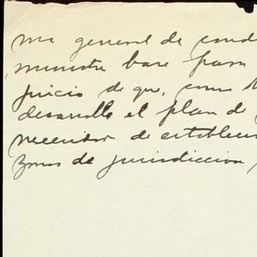 ma general de cond
ministre base para
juicio de que, como
desarrolle el plan de
necesidad de establecer
zonas de jurisdiccion,